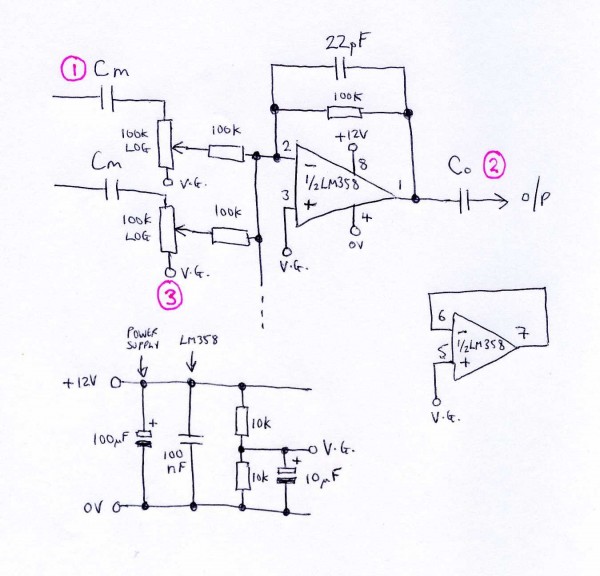 22pF
1 Cm
100k
100k
LOG
100k
+12V
2
8
1/2LM358
3
1
4
Co 2
O/P
V.G.
0V
V.G.
Cm
100k
LOG
100k
V.G.
3
6
5
1/2LM358
7
V.G.
POWER
SUPPLY
LM358
+12V
100µF
+
100
nF
10k
V.G.
10k
+
10µF
0V